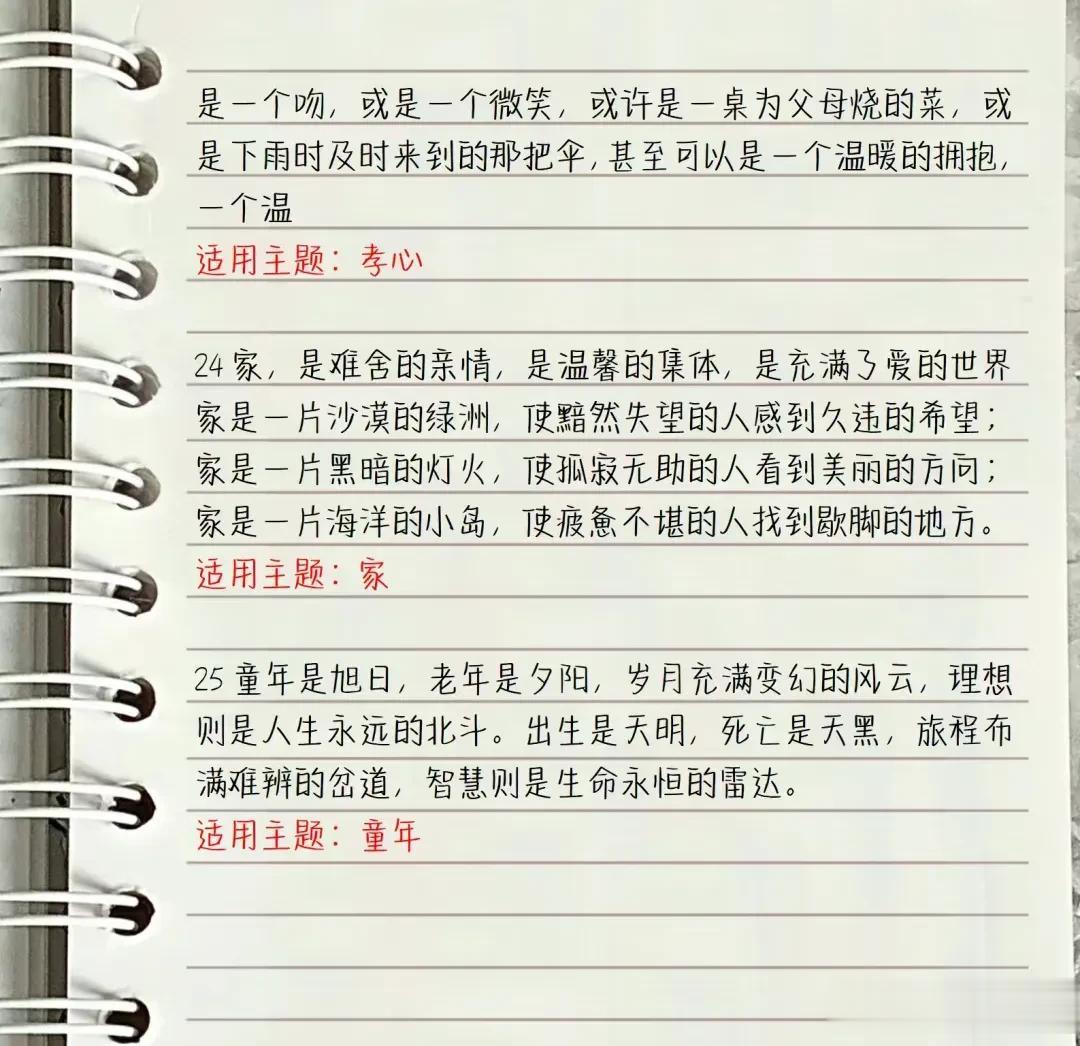 是一个吻，或是一个微笑，或许是一桌为父母烧的菜，或
是下雨时及时来到的那把伞，甚至可以是一个温暖的拥抱，
一个温
适用主题：孝心
24 家，是难舍的亲情，是温馨的集体，是充满了爱的世界
家是一片沙漠的绿洲，使黯然失望的人感到久违的希望；
家是一片黑暗的灯火，使孤寂无助的人看到美丽的方向；
家是一片海洋的小岛，使疲惫不堪的人找到歇脚的地方。
适用主题：家
25 童年是旭日，老年是夕阳，岁月充满变幻的风云，理想
则是人生永远的北斗。出生是天明，死亡是天黑，旅程布
满难辨的岔道，智慧则是生命永恒的雷达。
适用主题：童年